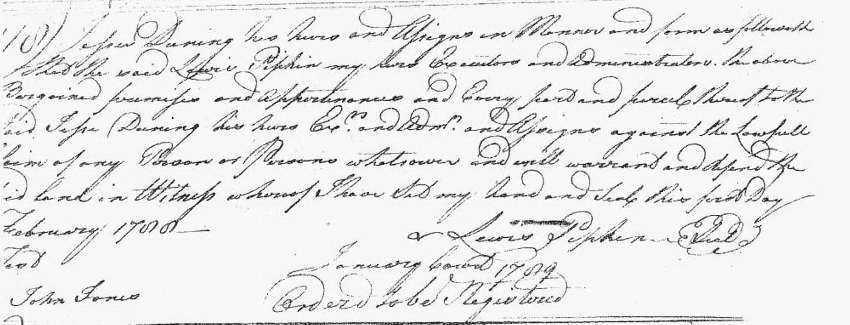 Jesse Duning his heirs and Assigns in Manner and form as followeth
that the said Lewis Pipkin my heirs Executors and Administrators the above
Bargained premises and Appertinances and Every part and parcel thereof to the
said Jesse Duning his heirs Exrs. and Admrs. and Assigns against the Lawfull
Claim of any Person or Persons whatsoever and will warrant and defend the
sd land in Witness whereof I have Set my hand and Seal this first Day
February 1788
Lewis Pipkin Seal
Test
January Court 1789
John Jones
Orderd to be Registred